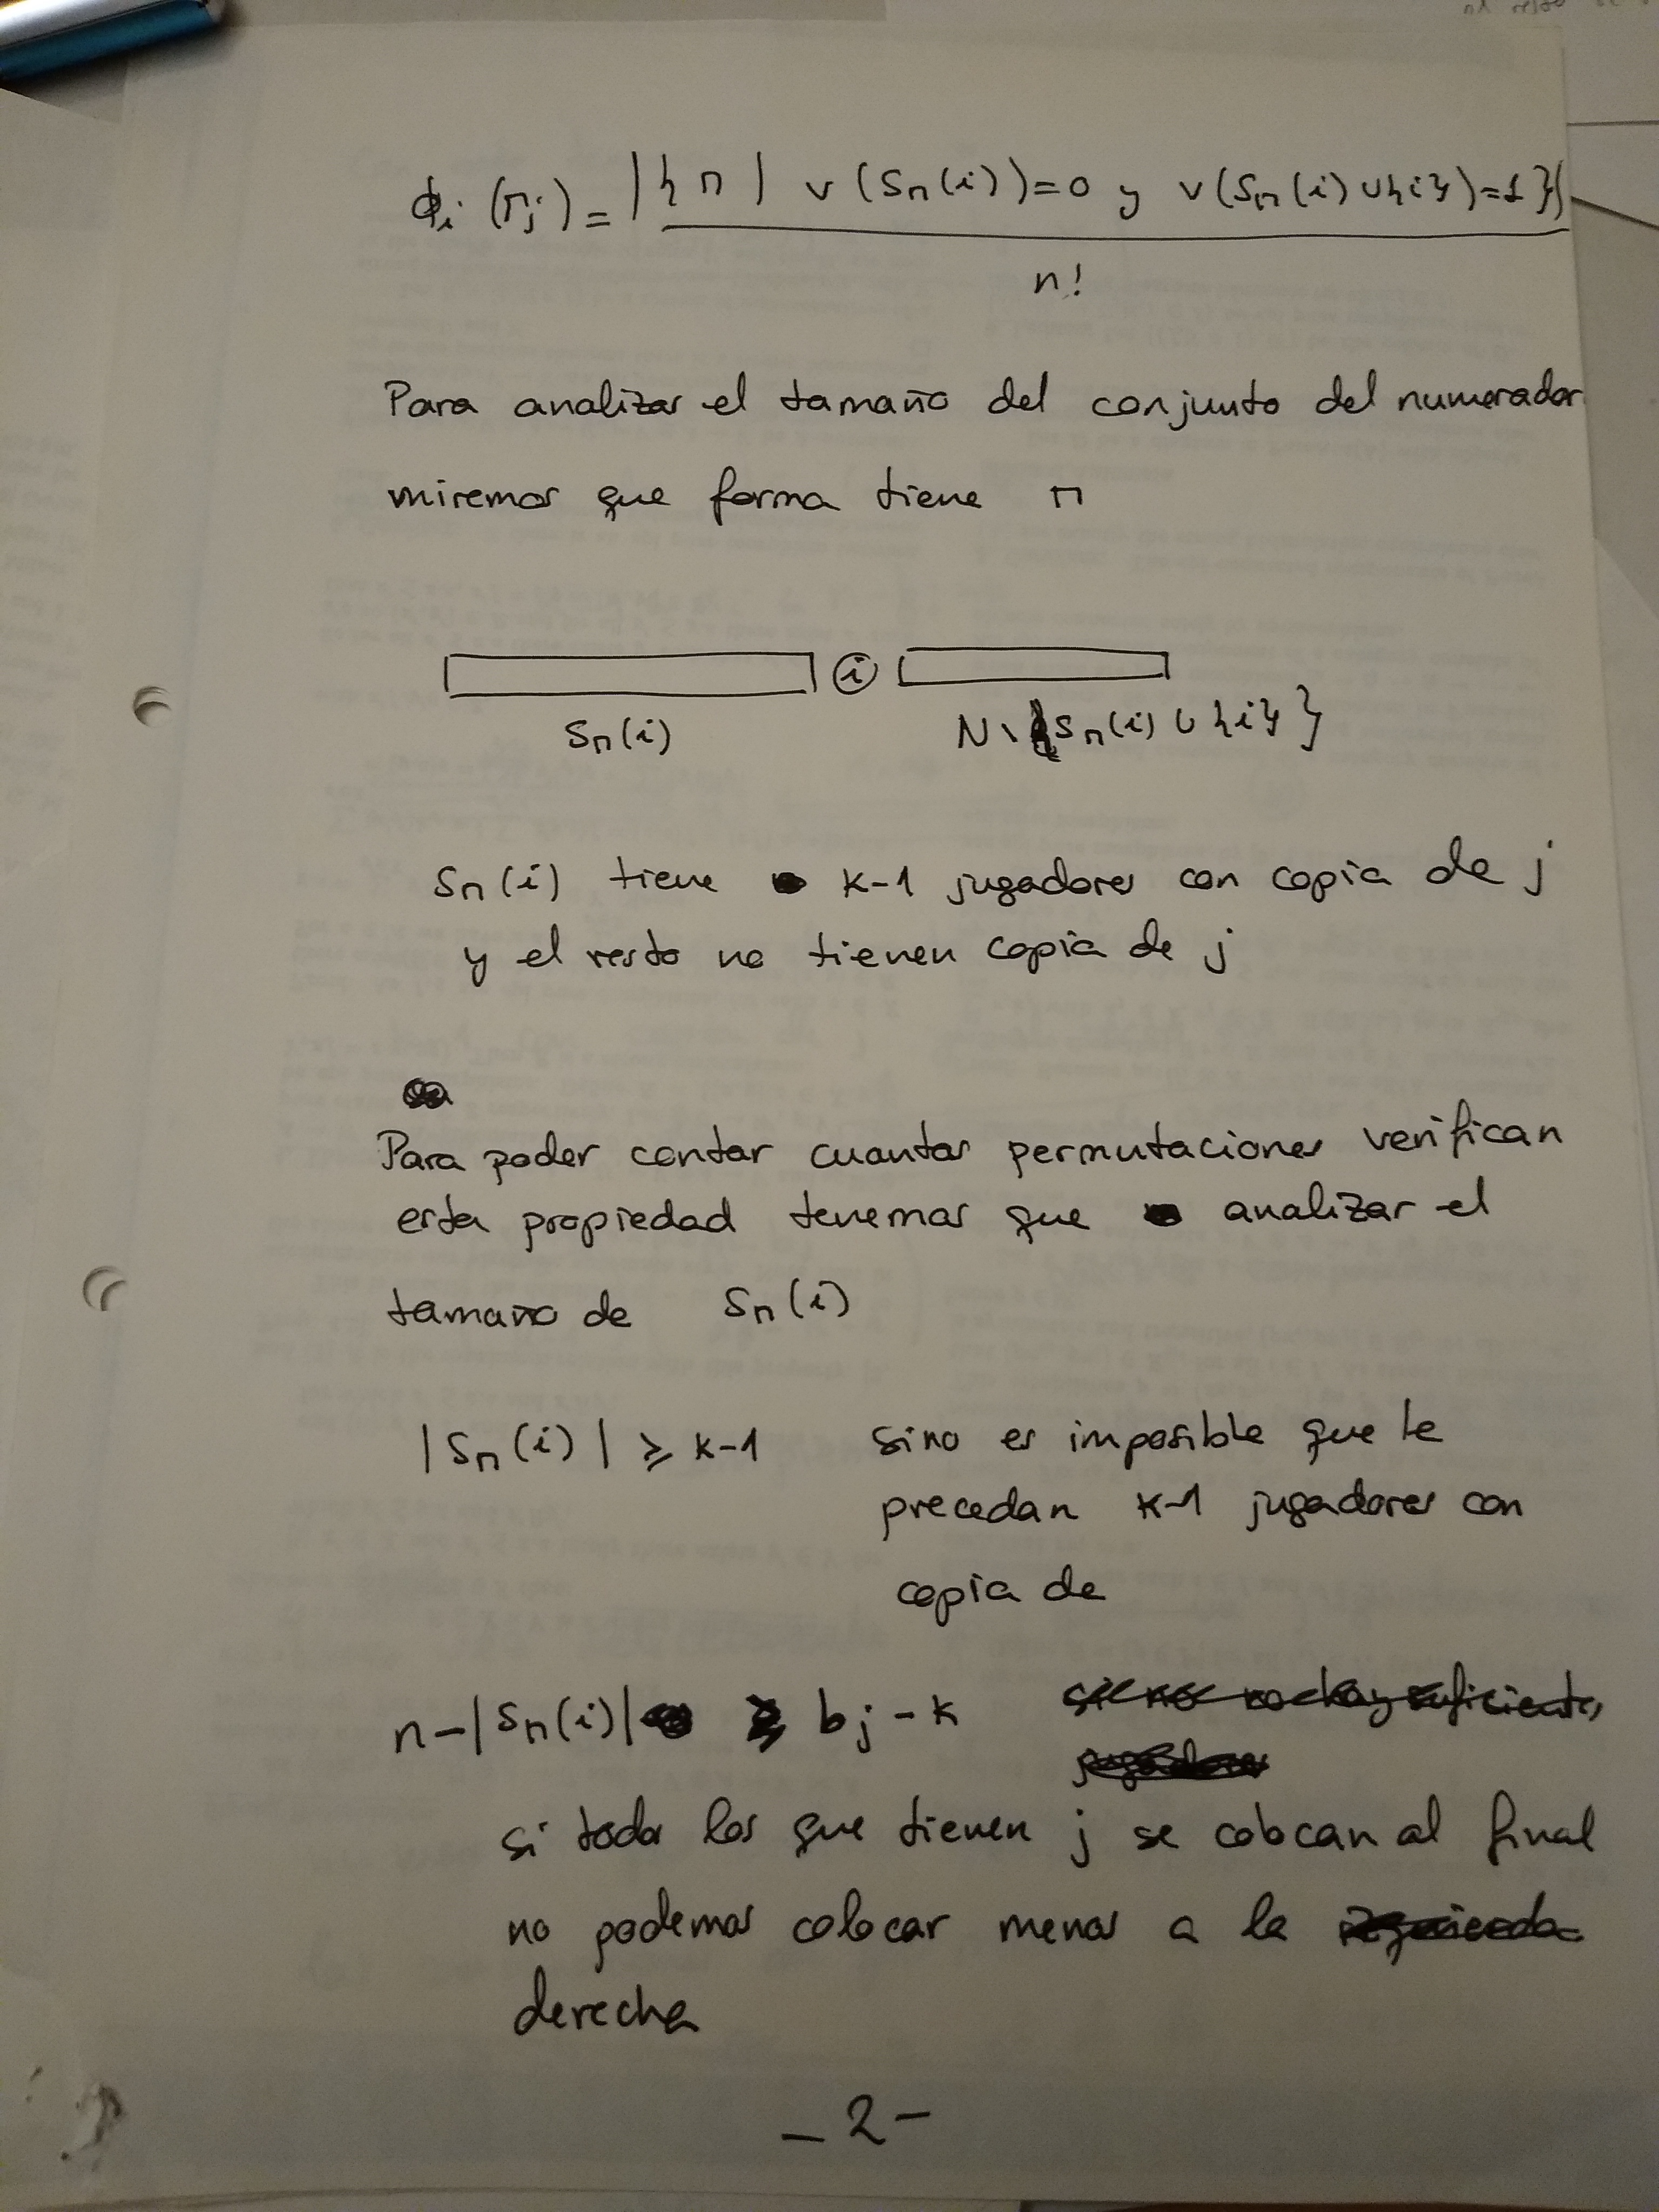 ϕi (Γj) = |{π | v(Sπ(i))=0 y v(Sπ(i)∪{i})=1}|
n!
Para analizar el tamaño del conjunto del numerador
miremos que forma tiene π
i
Sπ(i) N\Sπ(i)∪{i}}
Sπ(i) tiene k-1 jugadores con copia de j
y el resto no tienen copia de j
Para poder contar cuantas permutaciones verifican
esta propiedad tenemos que analizar el
tamaño de Sπ(i)
|Sπ(i)| ≥ k-1 sino es imposible que le
precedan k-1 jugadores con
copia de
n-|Sπ(i)| ≥ bj-k
si todos los que tienen j se colocan al final
no podemos colocar menos a la
derecha
-2-